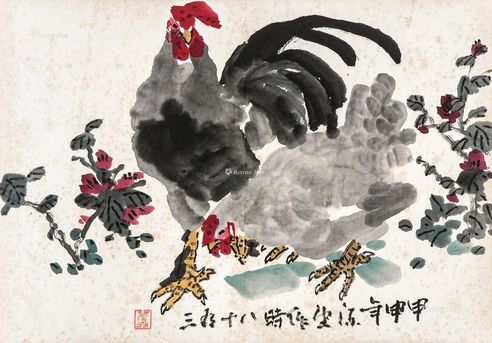 甲申年作時八十有三
Artron.Net